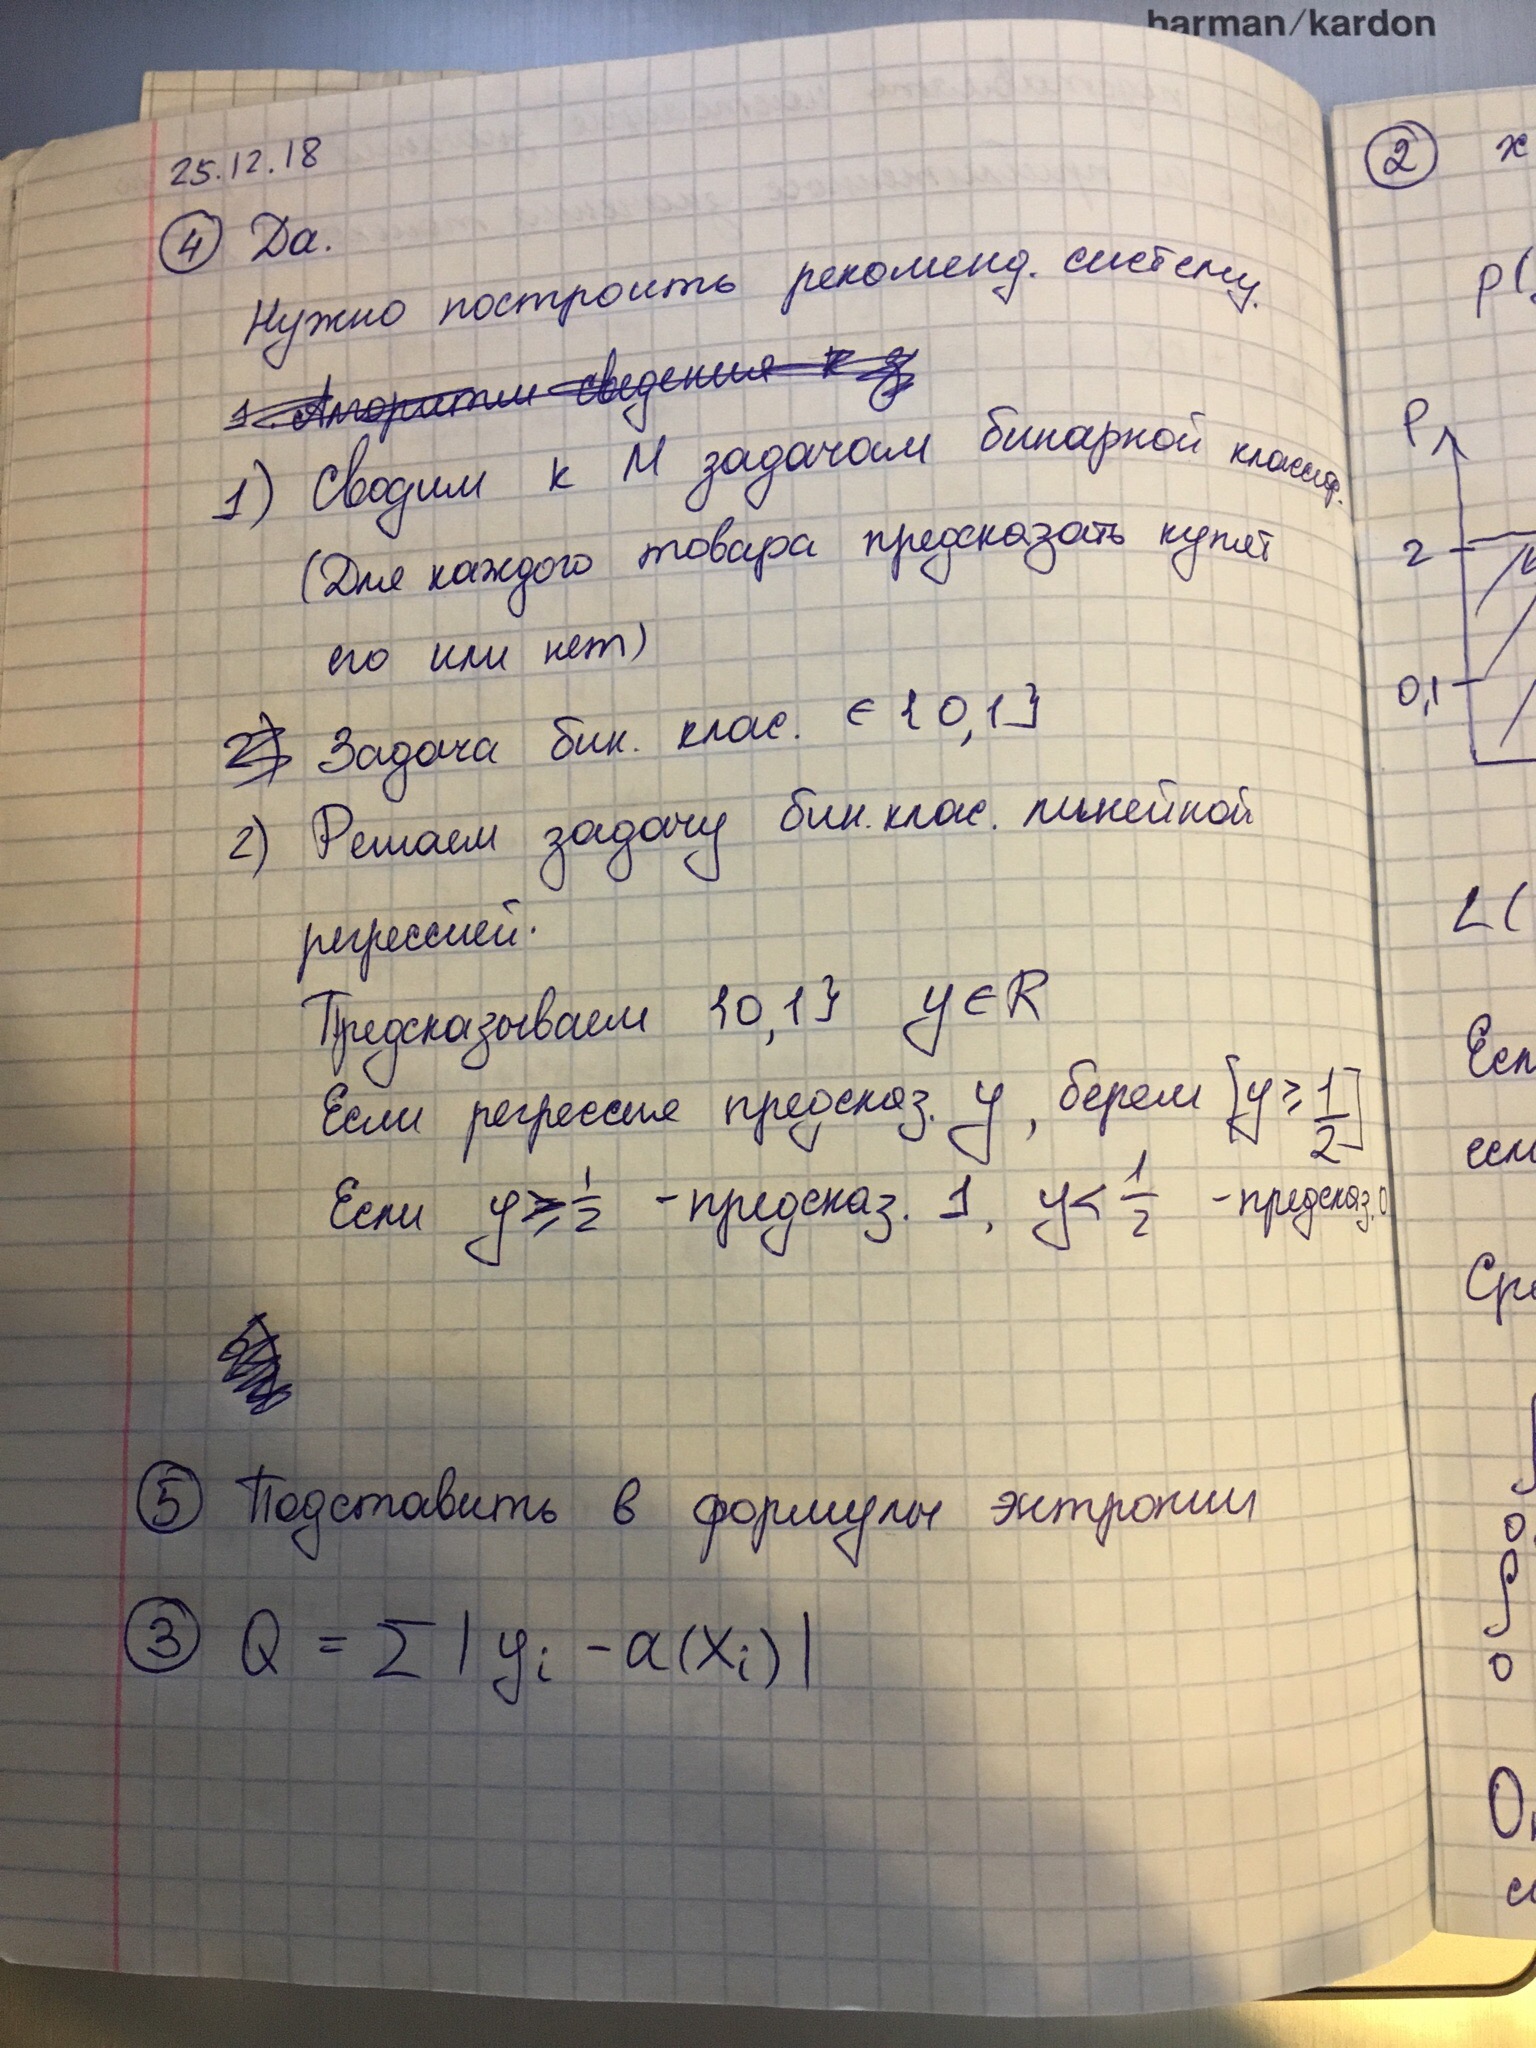 harman/kardon
25.12.18
④ Да.
Нужно построить рекоменд. систему.
1. Алгоритм сведения к з
1) Сводим к M задачам бинарной классиф.
(Для каждого товара предсказать купят
его или нет)
2) Задача бин. клас. ∈ {0,1}
2) Решаем задачу бин. клас. линейной
регрессией.
Предсказываем {0,1} y ∈ R
Если регрессия предсказ. y, берем [y ≥ 1/2]
Если y ≥ 1/2 - предсказ. 1, y < 1/2 - предсказ. 0
⑤ Подставить в формулы энтропии
③ Q = Σ | yi - a(xi) |
② x
p(
P
2
0,1
L(
Есл
если
Сре
∫
0
∫
0